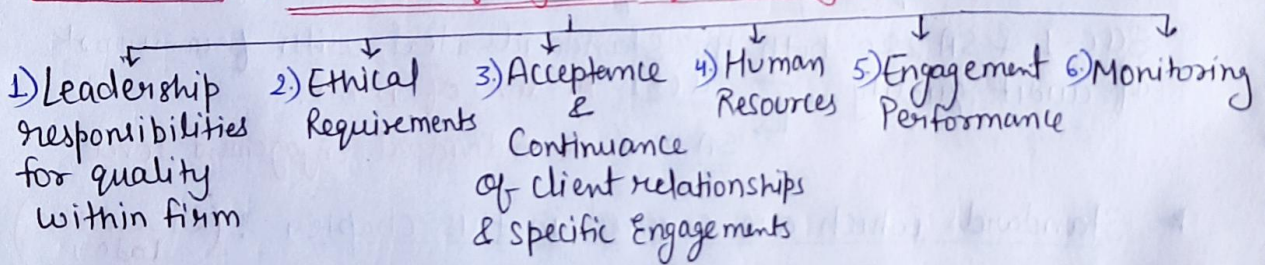 1) Leadership
responsibilities
for quality
within firm
2.) Ethical
Requirements
3.) Acceptance
&
Continuance
of client relationships
& specific Engagements
4.) Human
Resources
5.) Engagement
Performance
6.) Monitoring